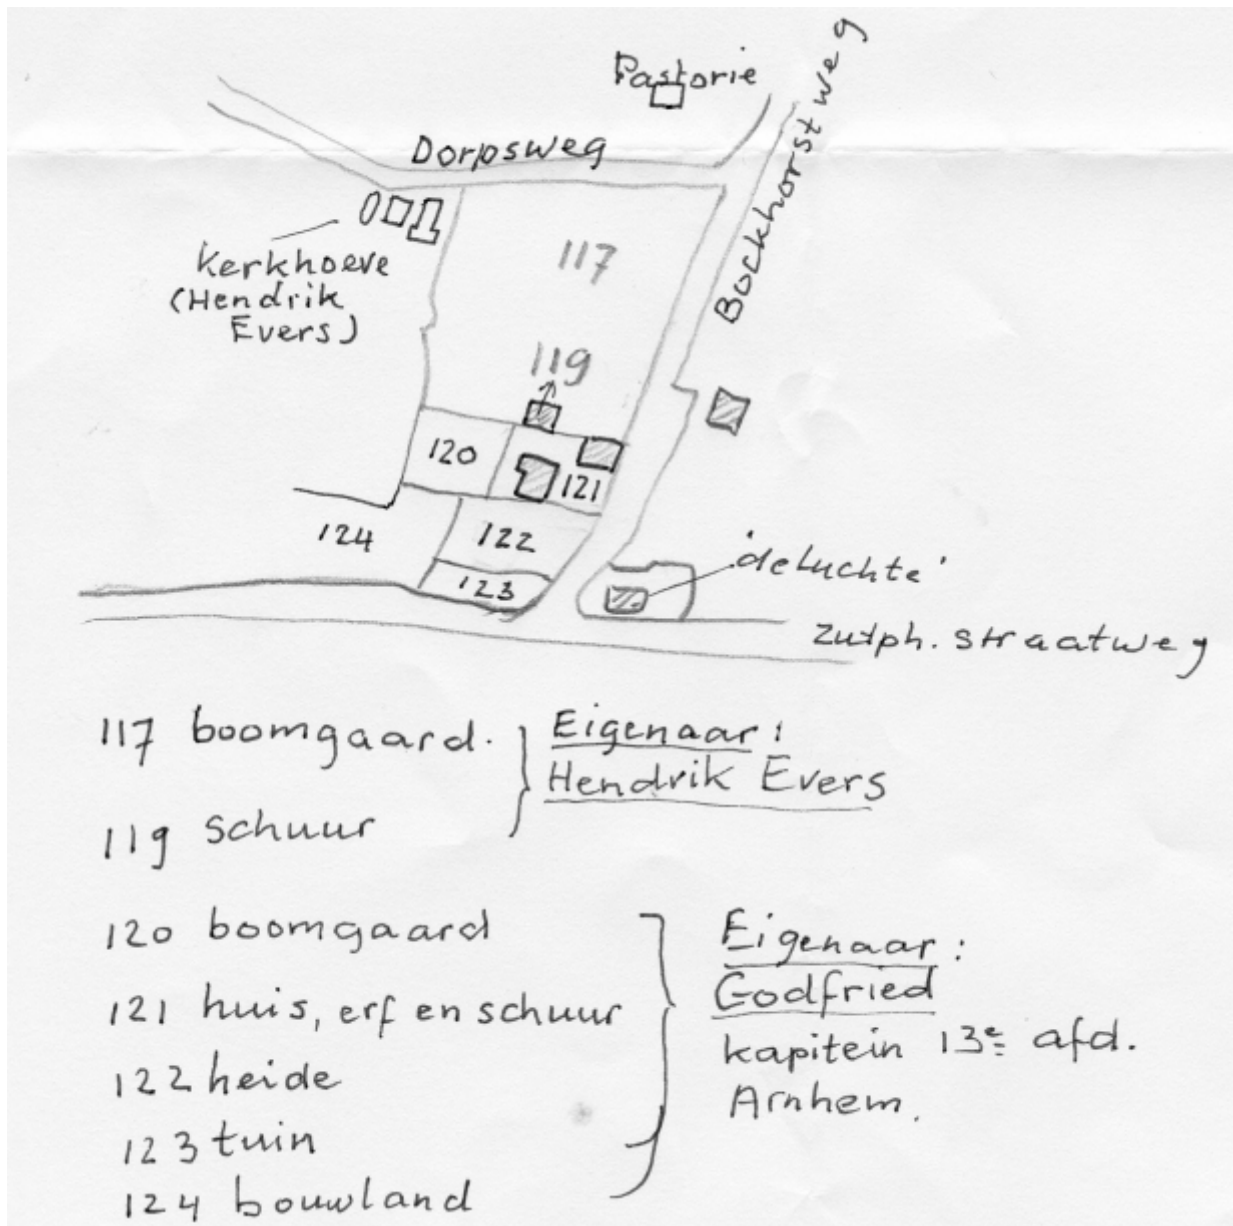 Pastorie
Dorpsweg
Bockhorstweg
Kerkhoeve
(Hendrik
Evers)
117
119
120
121
124
122
123
'de Luchte'
Zutph. straatweg
117 boomgaard.
119 schuur
Eigenaar:
Hendrik Evers
120 boomgaard
121 huis, erf en schuur
122 heide
123 tuin
124 bouwland
Eigenaar:
Godfried
kapitein 13e afd.
Arnhem.